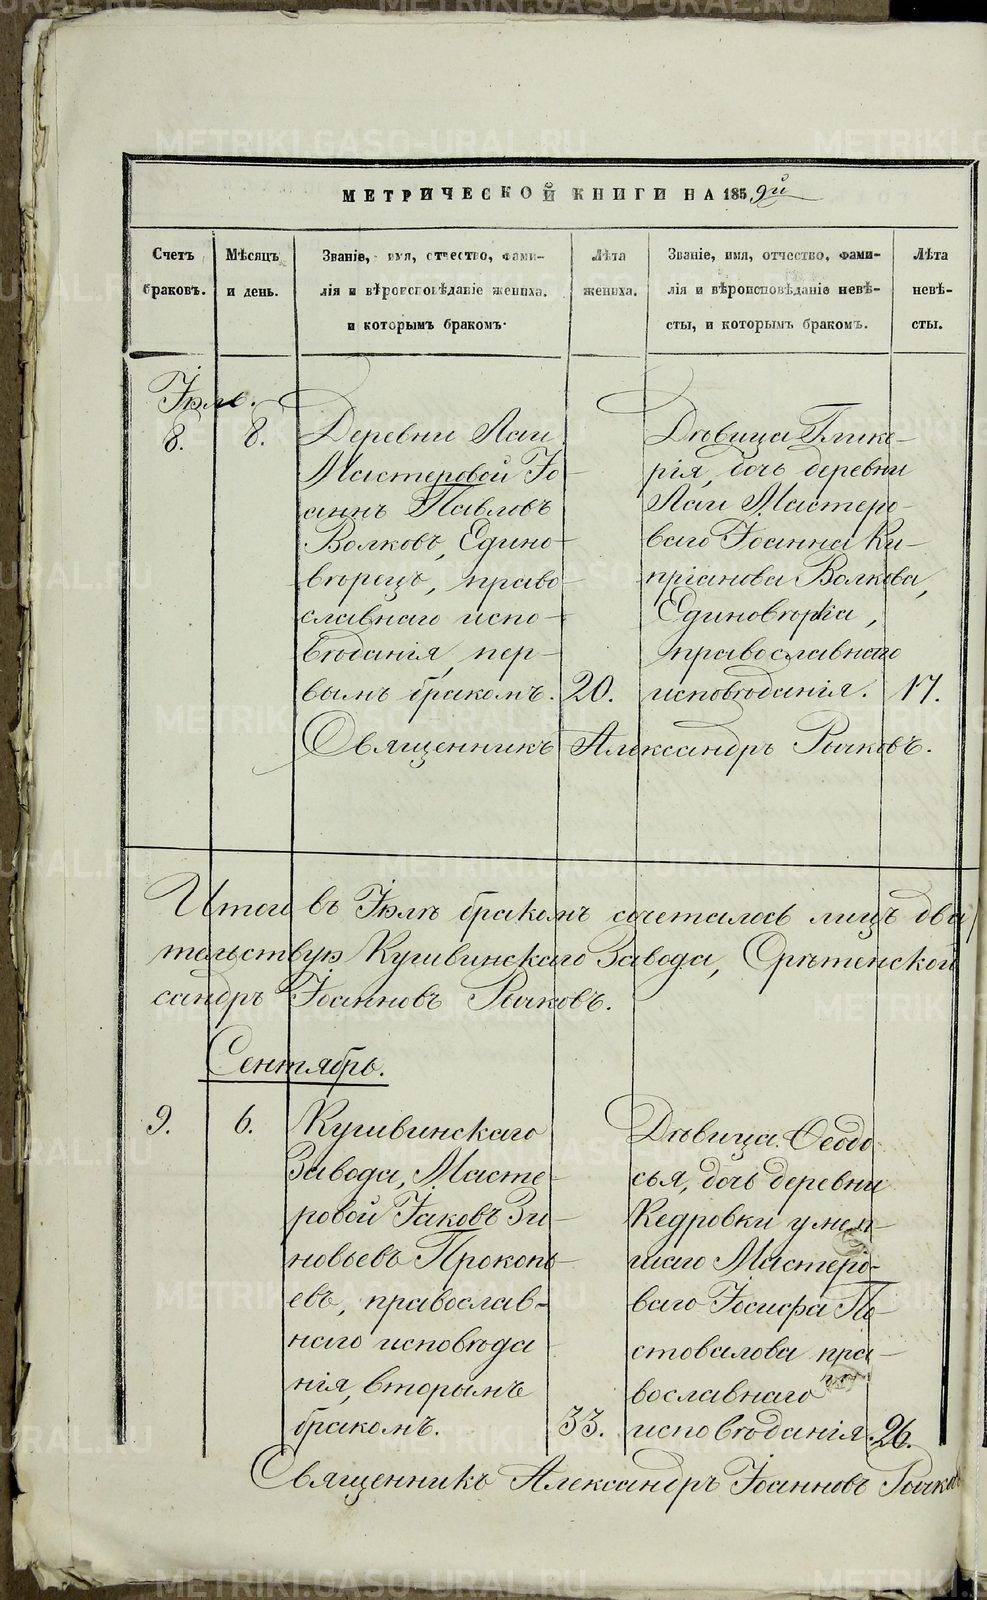 МЕТРИЧЕСКОЙ КНИГИ НА 1859й
Счетъ браковъ.
Мѣсяцъ и день.
Званіе, имя, отчество, фами-
лія и вѣроисповѣданіе жениха,
и которымъ бракомъ.
Лѣта
жениха.
Званіе, имя, отчество, фами-
лія и вѣроисповѣданіе невѣ-
сты, и которымъ бракомъ.
Лѣта
невѣ-
сты.
Іюль.
8.
8.
Деревни Лаи
Мастеровой Іо-
аннъ Павловъ
Волковъ, Едино-
вѣрецъ, право-
славнаго испо-
вѣданія, пер-
вымъ бракомъ.
20.
Дѣвица Глике-
рія, дочь деревни
Лаи Мастеро-
ваго Іоанна Ки-
пріанова Волкова,
Единовѣрка,
православнаго
исповѣданія.
17.
Священникъ Александръ Рычковъ.
Итого въ Іюлѣ бракомъ сочеталось лицъ два
тельствую Кушвинскаго Завода, Срѣтенской
сандръ Іоанновъ Рычковъ.
Сентябрь.
9.
6.
Кушвинскаго
Завода, Масте-
ровой Іаковъ Зи-
новьевъ Прокопь-
евъ, православ-
наго исповѣда-
нія, вторымъ
бракомъ.
33.
Дѣвица Ѳеодо-
сья, дочь деревни
Кедровки умер-
шаго Мастеро-
ваго Іосифа По-
стовалова пра-
вославнаго
исповѣданія.
26.
Священникъ Александръ Іоанновъ Рычковъ
METRIKI.GASO-URAL.RU